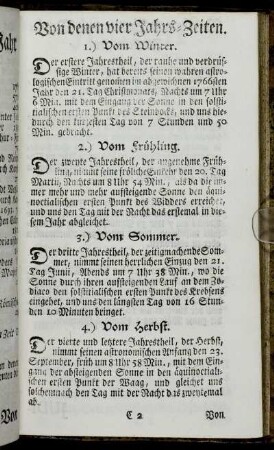 Von denen vier Jahrs-Zeiten.
1.) Vom Winter.
Der erstere Jahrstheil, der rauhe und verdrüß-
sige Winter, hat bereits seinen wahren astro-
logischen Eintritt genomen in abgewichenen 1766sten
Jahr den 21. Tag Christmonats, Nachts um 7 Uhr
6 Min. mit dem Eingang der Sonne in den solsti-
tialischen ersten Punkt des Steinbocks, und uns hie-
bey den kürzesten Tag von 7 Stunden und 50
Min. gebracht.
2.) Vom Frühling.
Der zweyte Jahrestheil, der angenehme Früh-
ling, nimmt seine fröliche Einkehr den 20. Tag
Martii, Nachts um 8 Uhr 54 Min., als da die im-
mer mehr und mehr aufsteigende Sonne den äqui-
noctialischen ersten Punkt des Widders erreichet,
und uns den Tag mit der Nacht das erstemal in die-
sem Jahr abgleichet.
3.) Vom Sommer.
Der dritte Jahrestheil, der zeitigmachende Som-
mer, nimmt seinen herrlichen Einzug den 21.
Tag Junii, Abends um 7 Uhr 38 Min., wo die
Sonne durch ihren aufsteigenden Lauf an dem Zo-
diaco den solstitialischen ersten Punkt des Krebsens
eingebet, und uns den längsten Tag von 16 Stun-
den 10 Minuten bringet.
4.) Vom Herbst.
Der vierte und letztere Jahrestheil, der Herbst,
nimmt seinen astronomischen Anfang den 23.
September, früh um 8 Uhr 58 Min., mit dem Ein-
gang der absteigenden Sonne in den äquinoctiali-
schen ersten Punkt der Waag, und gleichet uns
solchemnach den Tag mit der Nacht das zweytemal
ab.
C 2 Von